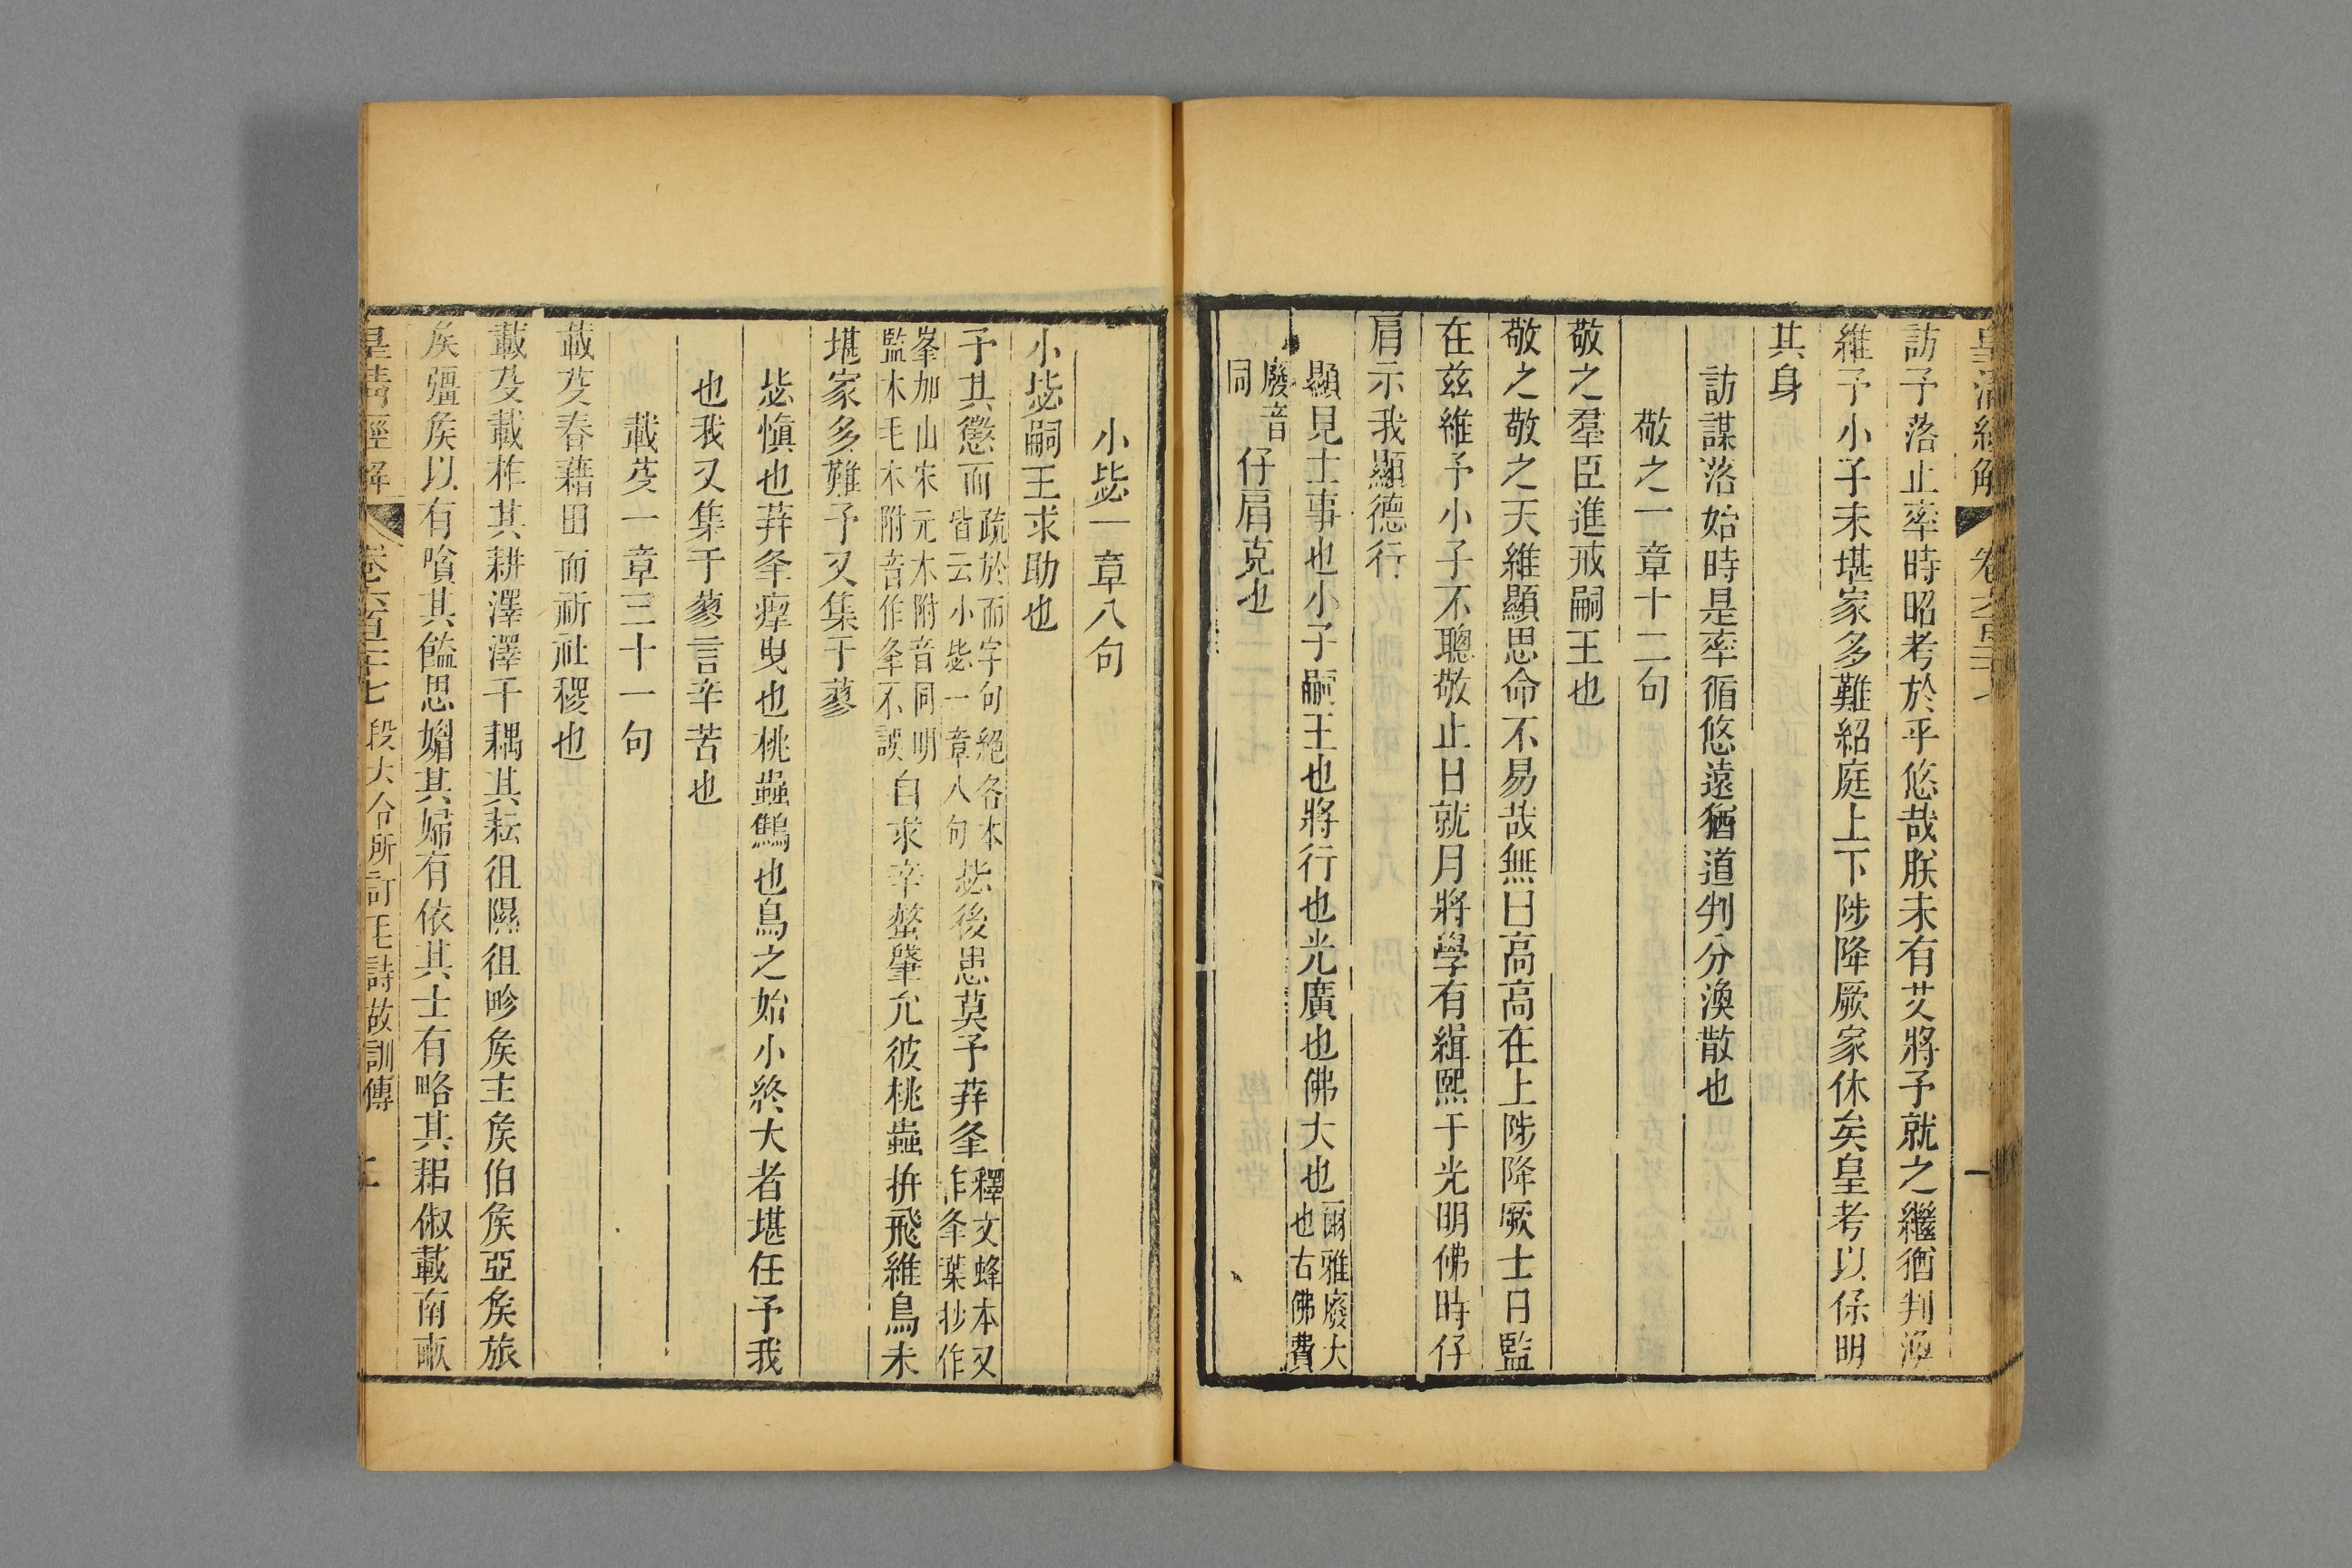 皇清經解 卷六百二十七
訪予落止率時昭考於乎悠哉朕未有艾將予就之繼猶判渙
維予小子未堪家多難紹庭上下陟降厥家休矣皇考以保明
其身
訪謀落始時是率循悠遠猶道判分渙散也
敬之一章十二句
敬之羣臣進戒嗣王也
敬之敬之天維顯思命不易哉無曰高高在上陟降厥士日監
在茲維予小子不聰敬止日就月將學有緝熙于光明佛時仔
肩示我顯德行
顯見士事也小子嗣王也將行也光廣也佛大也爾雅廢大也右佛費
廢音同仔肩克也
小毖一章八句
小毖嗣王求助也
予其懲而疏於而字句絕各本皆云小毖一章八句毖後患莫予荓夆釋文蜂本又作夆葉抄作
峯加山宋元本附音同明監本毛本附音作夆不誤自求辛螫肇允彼桃蟲拚飛維鳥未
堪家多難予又集于蓼
毖愼也荓夆瘽曳也桃蟲鷦也鳥之始小終大者堪任予我
也我又集于蓼言辛苦也
載芟一章三十一句
載芟春藉田而祈社稷也
載芟載柞其耕澤澤千耦其耘徂隰徂畛矦主矦伯矦亞矦旅
矦彊矦以有噴其饁思媚其婦有依其士有略其耜俶載南畝
皇清經解 卷六百二十七 段大令所訂毛詩故訓傳